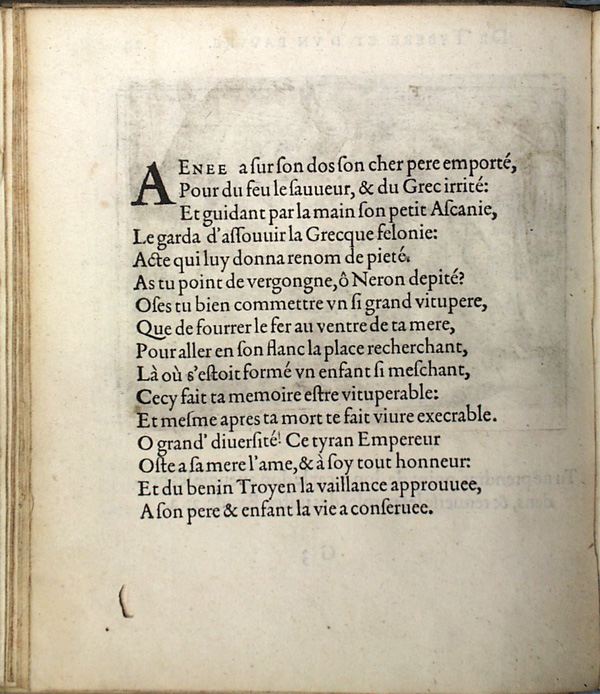 AENEE a sur son dos son cher pere emporté,
Pour du feu le sauueur, & du Grec irrité:
Et guidant par la main son petit Ascanie,
Le garda d'assouuir la Grecque felonie:
Acte qui luy donna renom de pieté.
As tu point de vergongne, ô Neron depité?
Oses tu bien commettre vn si grand vitupere,
Que de fourrer le fer au ventre de ta mere,
Pour aller en son flanc la place recherchant,
Là où s'estoit formé vn enfant si meschant,
Cecy fait ta memoire estre vituperable:
Et mesme apres ta mort te fait viure execrable.
O grand' diuersité! Ce tyran Empereur
Oste a sa mere l'ame, & à soy tout honneur:
Et du benin Troyen la vaillance approuuee,
A son pere & enfant la vie a conseruee.